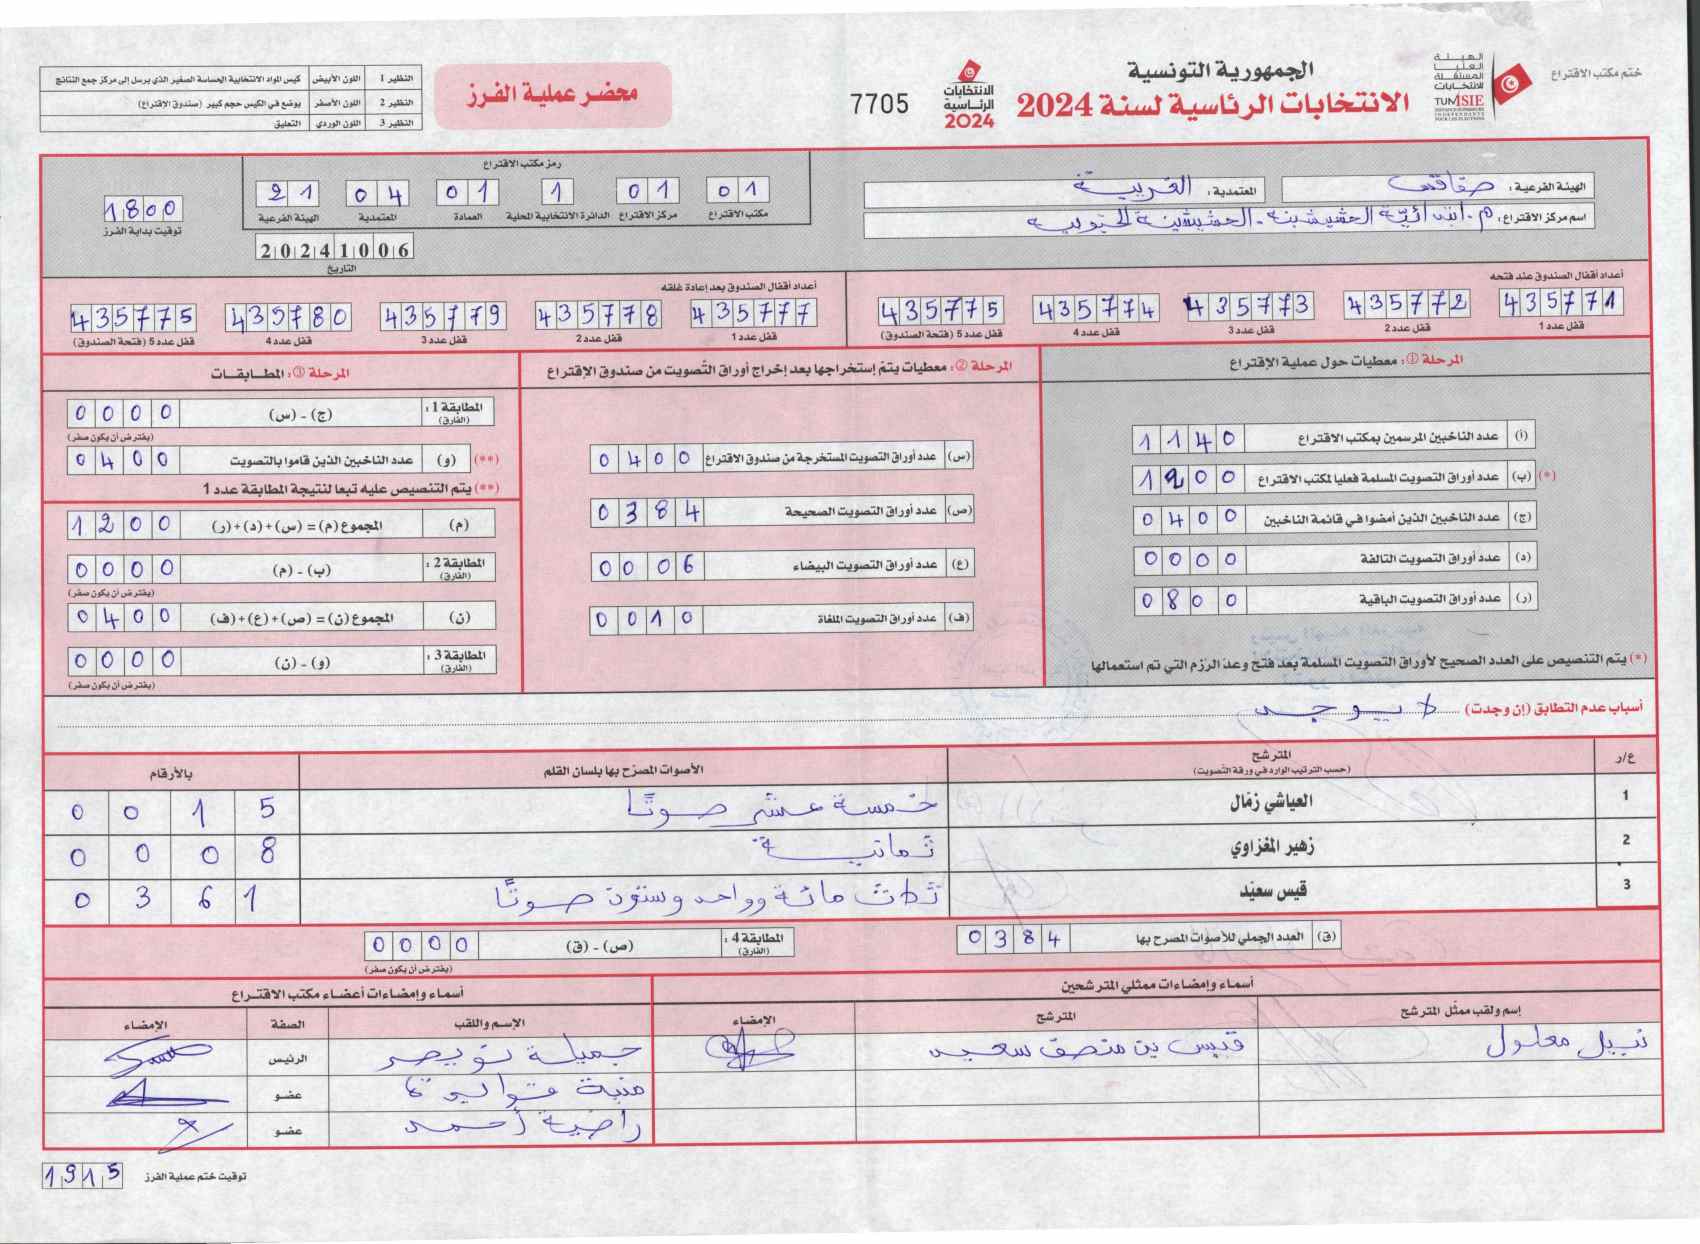 ختم مكتب الاقتراع
الهيئة
العليا
المستقلة
للانتخابات
TUNISIE
الجمهورية التونسية
الانتخابات الرئاسية لسنة 2024
الانتخابات
الرئاسية
2024
7705
محضر عملية الفرز
النظير 1 اللون الأبيض كيس المواد الانتخابية الحساسة الصغير الذي يرسل إلى مركز جمع النتائج
النظير 2 اللون الأصفر يوضع في الكيس حجم كبير (صندوق الاقتراع)
النظير 3 اللون الوردي التعليق
الهيئة الفرعية: صفاقس المعتمدية: الغريبة
اسم مركز الاقتراع: م. ابتدائية الحشيشينة - الحشيشينة الجنوبية
رمز مكتب الاقتراع
01 01 1 01 04 21
مكتب الاقتراع مركز الاقتراع الدائرة الانتخابية المحلية العمادة المعتمدية الهيئة الفرعية
20241006
التاريخ
1800
توقيت بداية الفرز
أعداد أقفال الصندوق عند فتحه
435771 435772 435773 435774 435775
قفل عدد 1 قفل عدد 2 قفل عدد 3 قفل عدد 4 قفل عدد 5 (فتحة الصندوق)
أعداد أقفال الصندوق بعد إعادة غلقه
435777 435778 435779 435780 435775
قفل عدد 1 قفل عدد 2 قفل عدد 3 قفل عدد 4 قفل عدد 5 (فتحة الصندوق)
المرحلة ①: معطيات حول عملية الإقتراع
(أ) عدد الناخبين المرسمين بمكتب الاقتراع 1140
(*) (ب) عدد أوراق التصويت المسلمة فعليا لمكتب الاقتراع 1200
(ج) عدد الناخبين الذين أمضوا في قائمة الناخبين 0400
(د) عدد أوراق التصويت التالفة 0000
(ر) عدد أوراق التصويت الباقية 0800
(*) يتم التنصيص على العدد الصحيح لأوراق التصويت المسلمة بعد فتح وعد الرزم التي تم استعمالها
المرحلة ②: معطيات يتم إستخراجها بعد إخراج أوراق التصويت من صندوق الإقتراع
(س) عدد أوراق التصويت المستخرجة من صندوق الاقتراع 0400
(ص) عدد أوراق التصويت الصحيحة 0384
(ع) عدد أوراق التصويت البيضاء 0006
(ف) عدد أوراق التصويت الملغاة 0010
المرحلة ③: المطابقات
المطابقة 1: (الفارق) (ج) - (س) 0000
(يفترض أن يكون صفر)
(**) (و) عدد الناخبين الذين قاموا بالتصويت 0400
(**) يتم التنصيص عليه تبعا لنتيجة المطابقة عدد 1
(م) المجموع (م) = (س) + (د) + (ر) 1200
المطابقة 2: (الفارق) (ب) - (م) 0000
(يفترض أن يكون صفر)
(ن) المجموع (ن) = (ص) + (ع) + (ف) 0400
المطابقة 3: (الفارق) (و) - (ن) 0000
(يفترض أن يكون صفر)
أسباب عدم التطابق (إن وجدت) لا يوجد
ع/ر المترشح الأصوات المصرّح بها بلسان القلم بالأرقام
(حسب الترتيب الوارد في ورقة التصويت)
1 العياشي زمّال خمسة عشر صوتًا 0015
2 زهير المغزاوي ثمانية 0008
3 قيس سعيّد ثلاث مائة وواحد وستون صوتًا 0361
(ق) العدد الجملي للأصوات المصرح بها 0384
المطابقة 4: (الفارق) (ص) - (ق) 0000
(يفترض أن يكون صفر)
أسماء وإمضاءات ممثلي المترشحين
إسم ولقب ممثل المترشح المترشح الإمضاء
نبيل معلول قيس بن منصف سعيد
أسماء وإمضاءات أعضاء مكتب الاقتراع
الإسم واللقب الصفة الإمضاء
جميلة الرئيس
منية عضو
راضية أحمد عضو
توقيت ختم عملية الفرز 1915